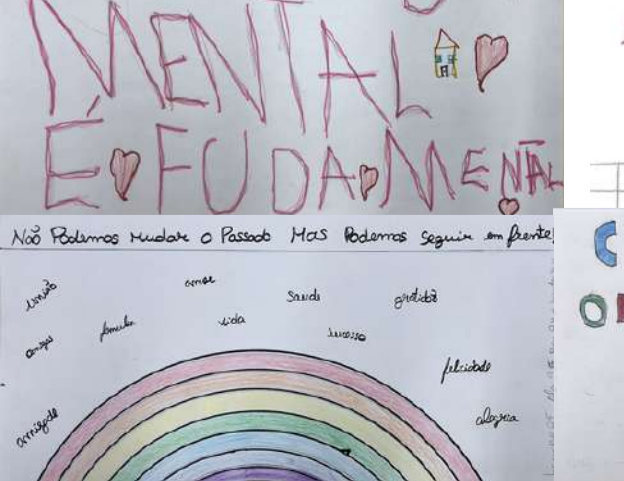 MENTAL
É FUDAMENTAL
Não Podemos Mudar o Passado Mas Podemos Seguir em frente!
amor
Saude
gratidão
familia
vida
sucesso
felicidade
alegria
amizade